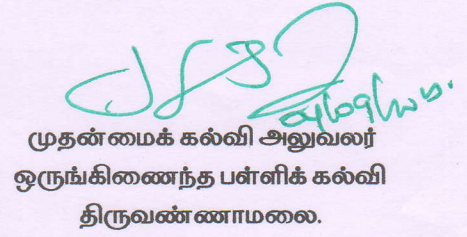 முதன்மைக் கல்வி அலுவலர்
ஒருங்கிணைந்த பள்ளிக் கல்வி
திருவண்ணாமலை.